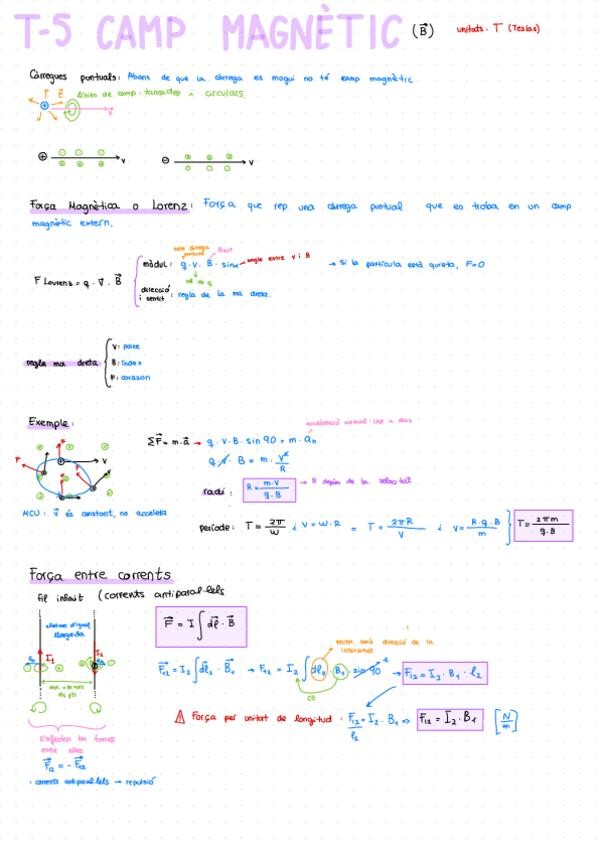 T-5 CAMP MAGNÈTIC (B⃗) unitats: T (Teslas)
Càrregues puntuals: Abans de que la càrrega es mogui no té camp magnètic.
línies de camp: tancades i circulars.
v⃗
⊕ v ⊖ v
Força Magnètica o Lorenz: Força que rep una càrrega puntual que es troba en un camp
magnètic extern.
F Lorenz = q · v⃗ · B⃗
mòdul: q · v · B · sinα angle entre v i B → Si la partícula està quieta, F=0
direcció i sentit: regla de la ma dreta.
regla ma dreta
V:
B: índex
F: corazon
Exemple:
acceleració normal: cap a dins
ΣF⃗ = m·a⃗ → q · v · B · sin 90 = m · aₙ
q · v · B = m · v²/R
radi: R = m·v / q·B → R depèn de la velocitat
MCU: v⃗ és constant, no accelera
període: T = 2π/w i V = w·R = T = 2πR/V i V = R·q·B/m T = 2πm/q·B
Força entre corrents
fil infinit (corrents antiparal·lels
F⃗ = I ∫ dl⃗ · B⃗
I₁ I₂
vector amb direcció de la
intensitat
F⃗₁₂ = I₂ ∫ dl⃗₂ · B⃗₁ → F₁₂ = I₂ ∫ dl₂ · B₁ · sin 90 → F₁₂ = I₂ · B₁ · l₂
ct
⚠ Força per unitat de longitud: F₁₂/l₂ = I₂ · B₁ => F₁₂ = I₂ · B₁ [N/m]
les forces
entre elles
· corrents antiparal·lels → repulsió